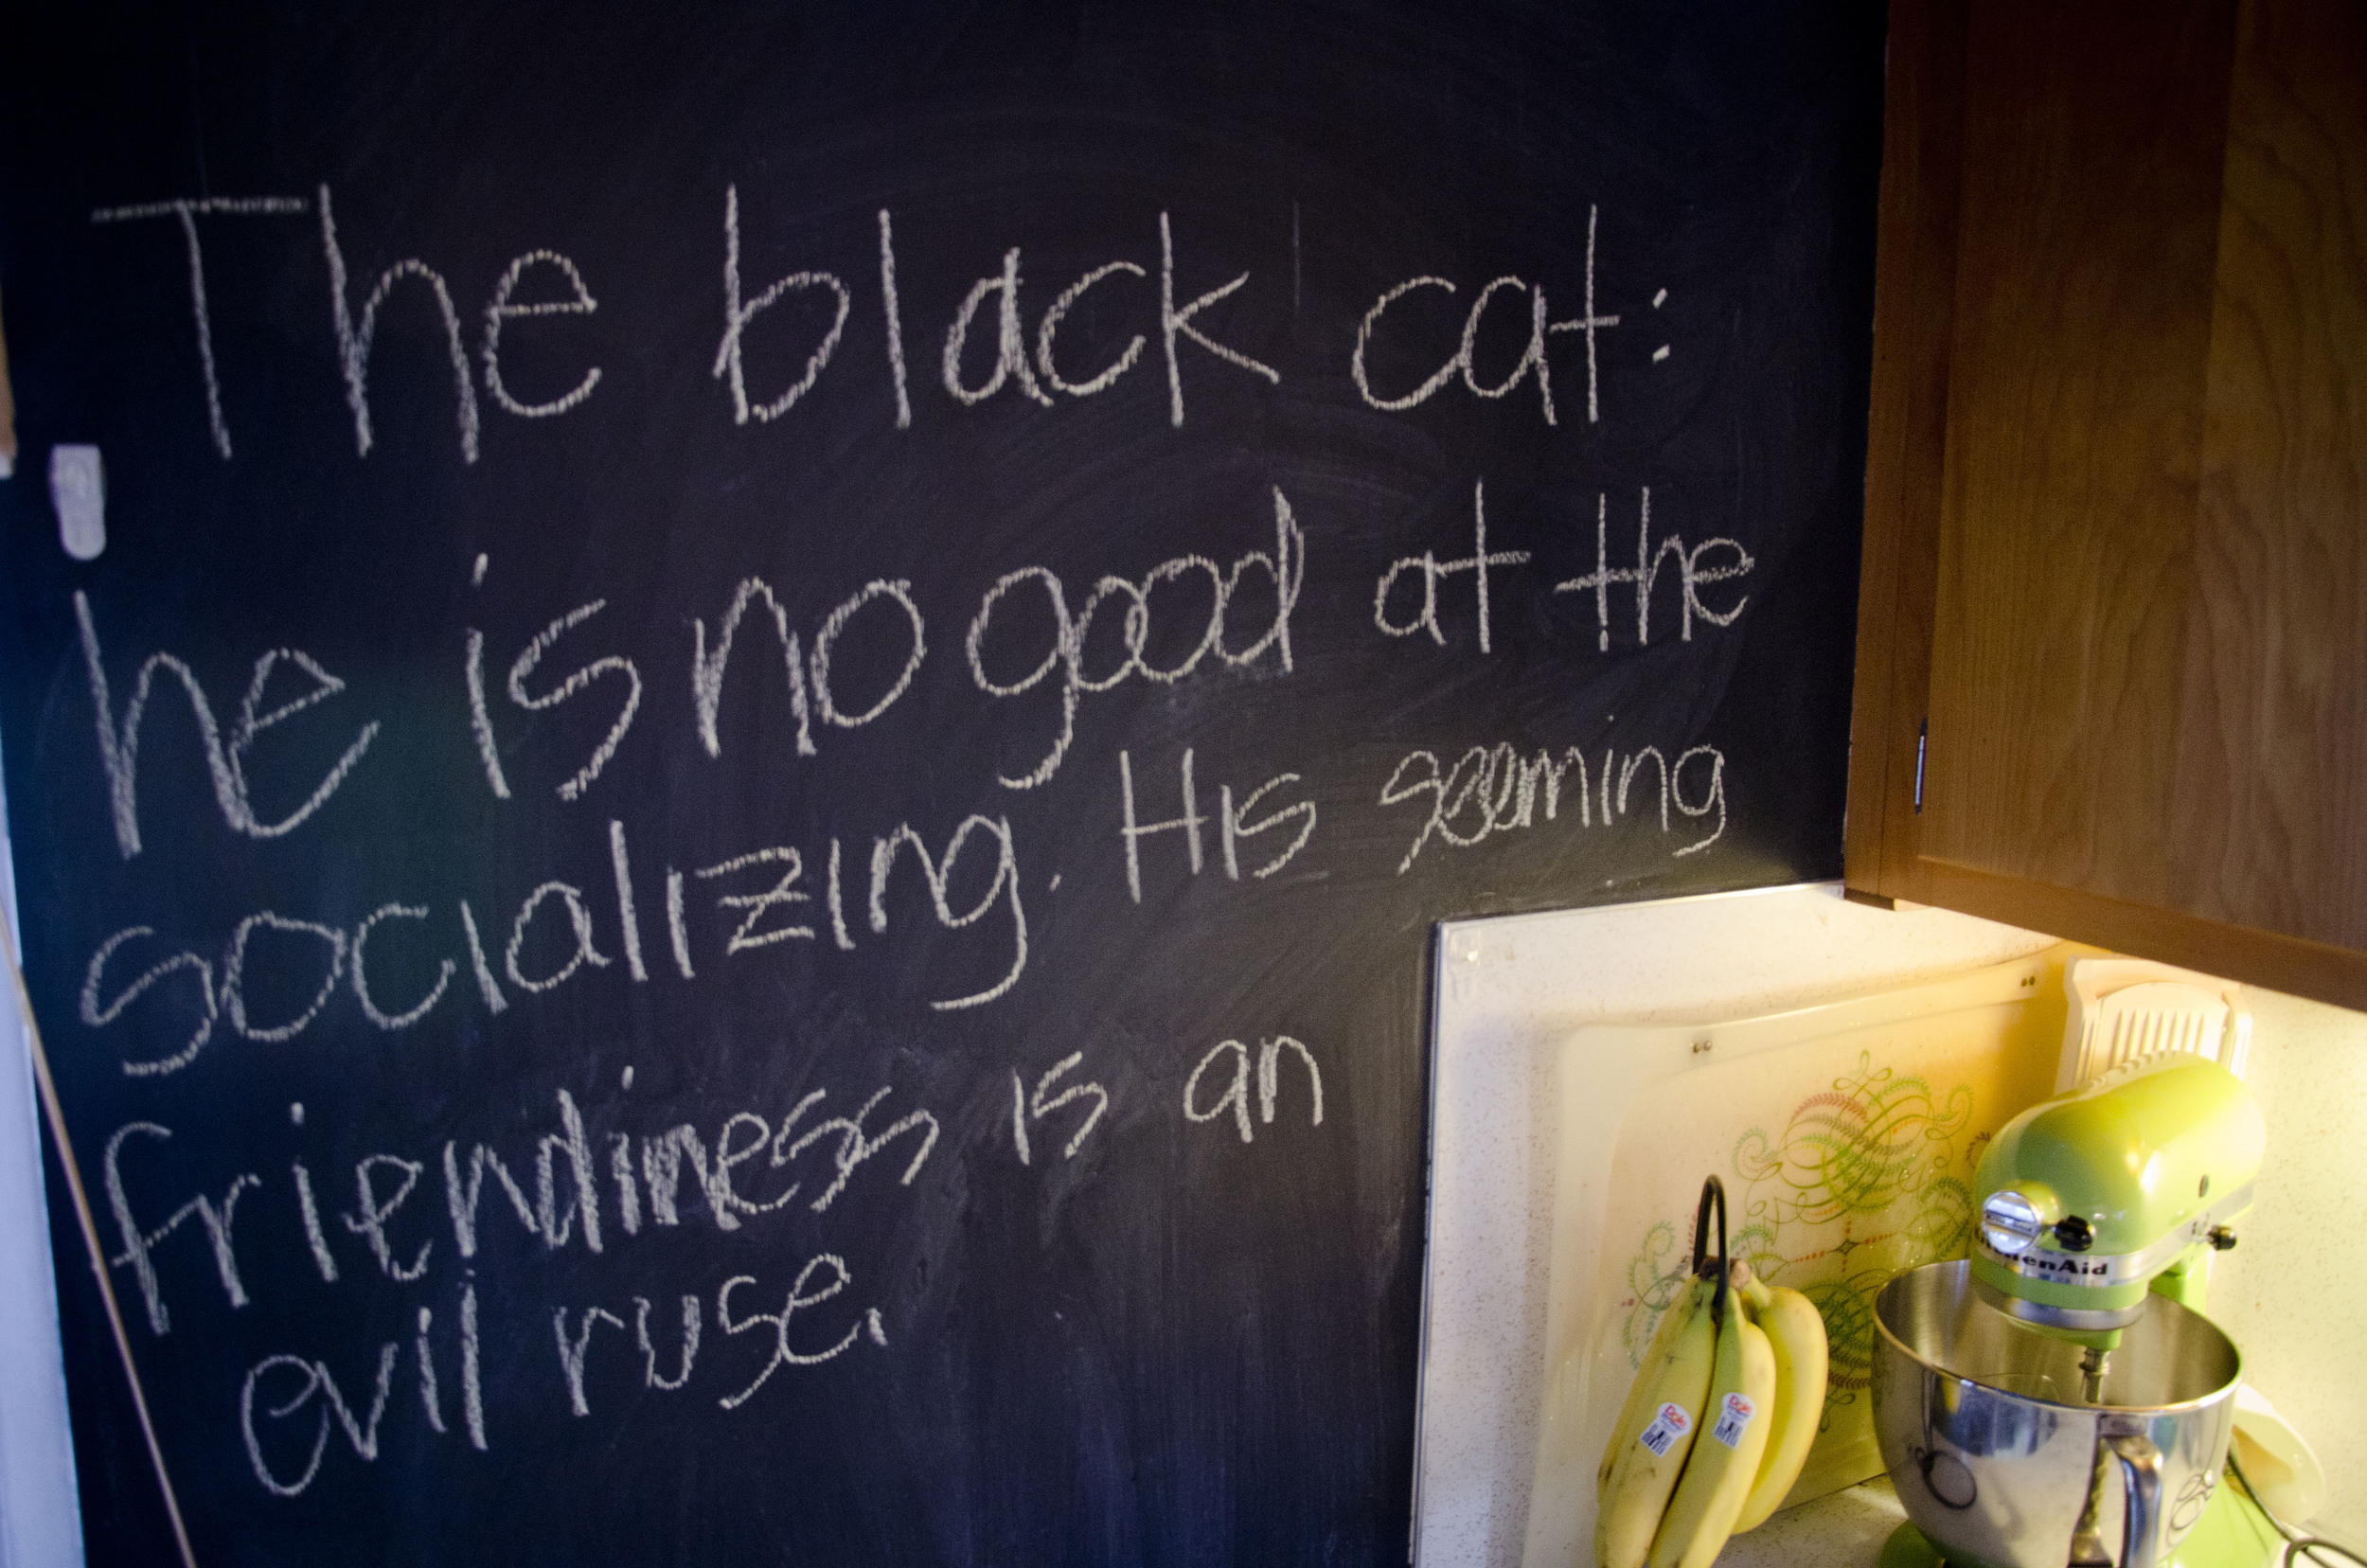 The black cat:
he is no good at the
socializing. His seeming
friendliness is an
evil ruse.
KitchenAid
Dole
Dole